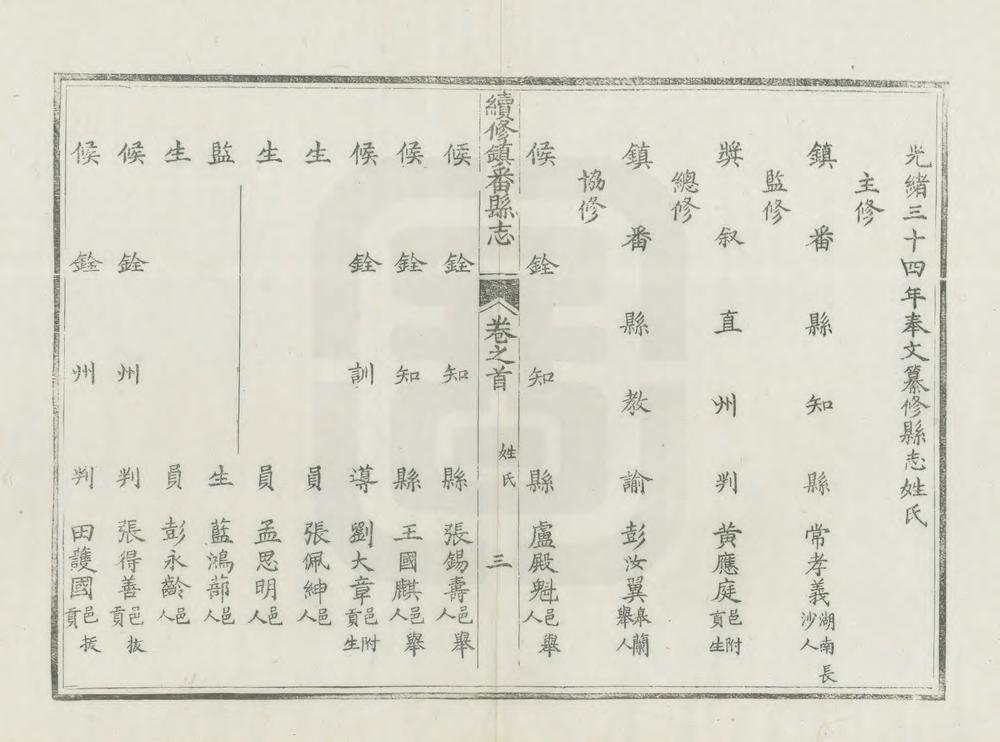 光緒三十四年奉文纂修縣志姓氏
主修
鎮番縣知縣 常孝義 湖南長沙人
監修
獎叙直州判 黄應庭 邑附貢生
總修
鎮番縣教諭 彭汝翼 皋蘭舉人
協修
候銓知縣 盧殿魁 邑舉人
續修鎮番縣志 卷之首 姓氏 三
候銓知縣 張錫壽 邑舉人
候銓知縣 王國麒 邑舉人
候銓訓導 劉大章 邑附貢生
生員 張佩紳 邑人
生員 孟思明 邑人
監生 藍鴻 邑人
生員 彭永齡 邑人
候銓州判 張得善 邑拔貢
候銓州判 田護國 邑拔貢